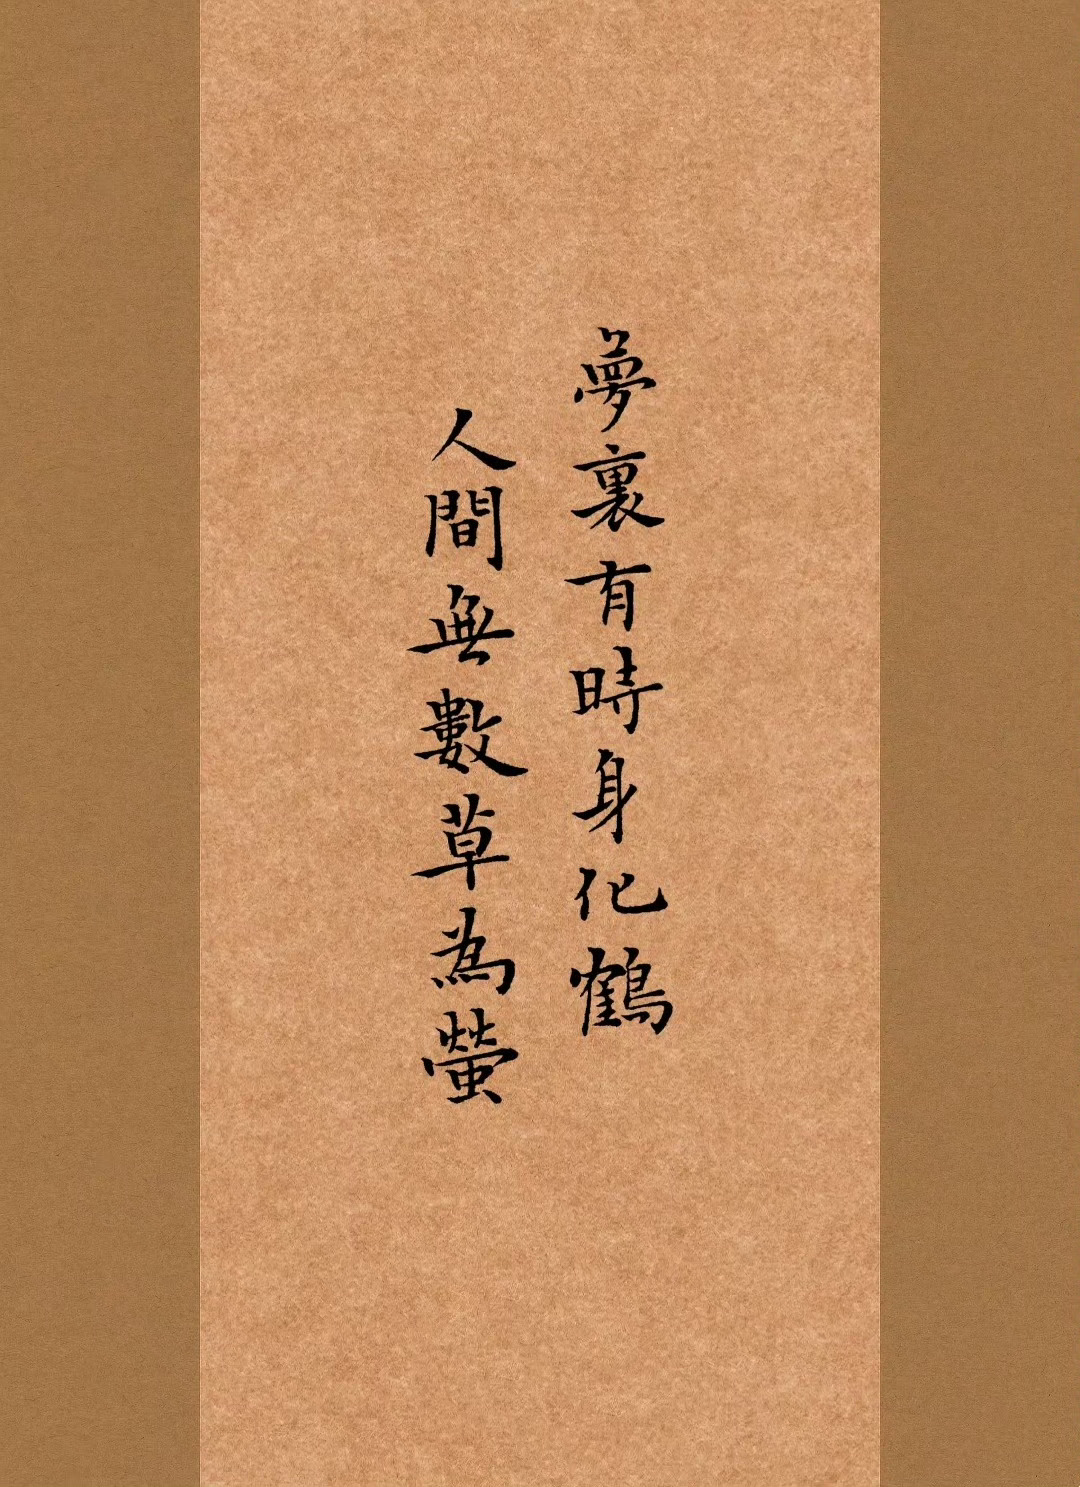 夢裏有時身化鶴
人間無數草為螢